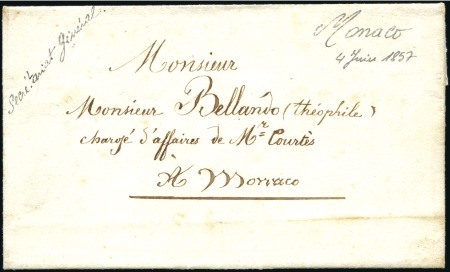 Secrétariat Général.
Monaco
4 Juin 1857
Monsieur
Monsieur Bellando (théophile)
chargé d'affaires de Mr Courtès
À Monaco